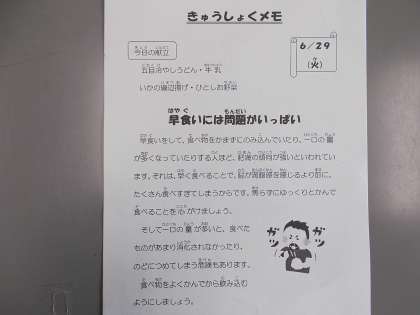 きゅうしょくメモ
6/29
(火)
今日の献立
五目冷やしうどん・牛乳
いかの磯辺揚げ・ひとしお野菜
早食いには問題がいっぱい
早食いをして、食べ物をかまずにのみ込んでいたり、一口の量
が多くなっていたりする人ほど、肥満の傾向が強いといわれてい
ます。それは、早く食べることで、脳が満腹感を感じるより前に、
たくさん食べすぎてしまうからです。焦らずにゆっくりとかんで
食べることを心がけましょう。
そして一口の量が多いと、食べた
ものがあまり消化されなかったり、
のどにつめてしまう危険もあります。
食べ物をよくかんでから飲み込む
ようにしましょう。
ガッ
ガッ